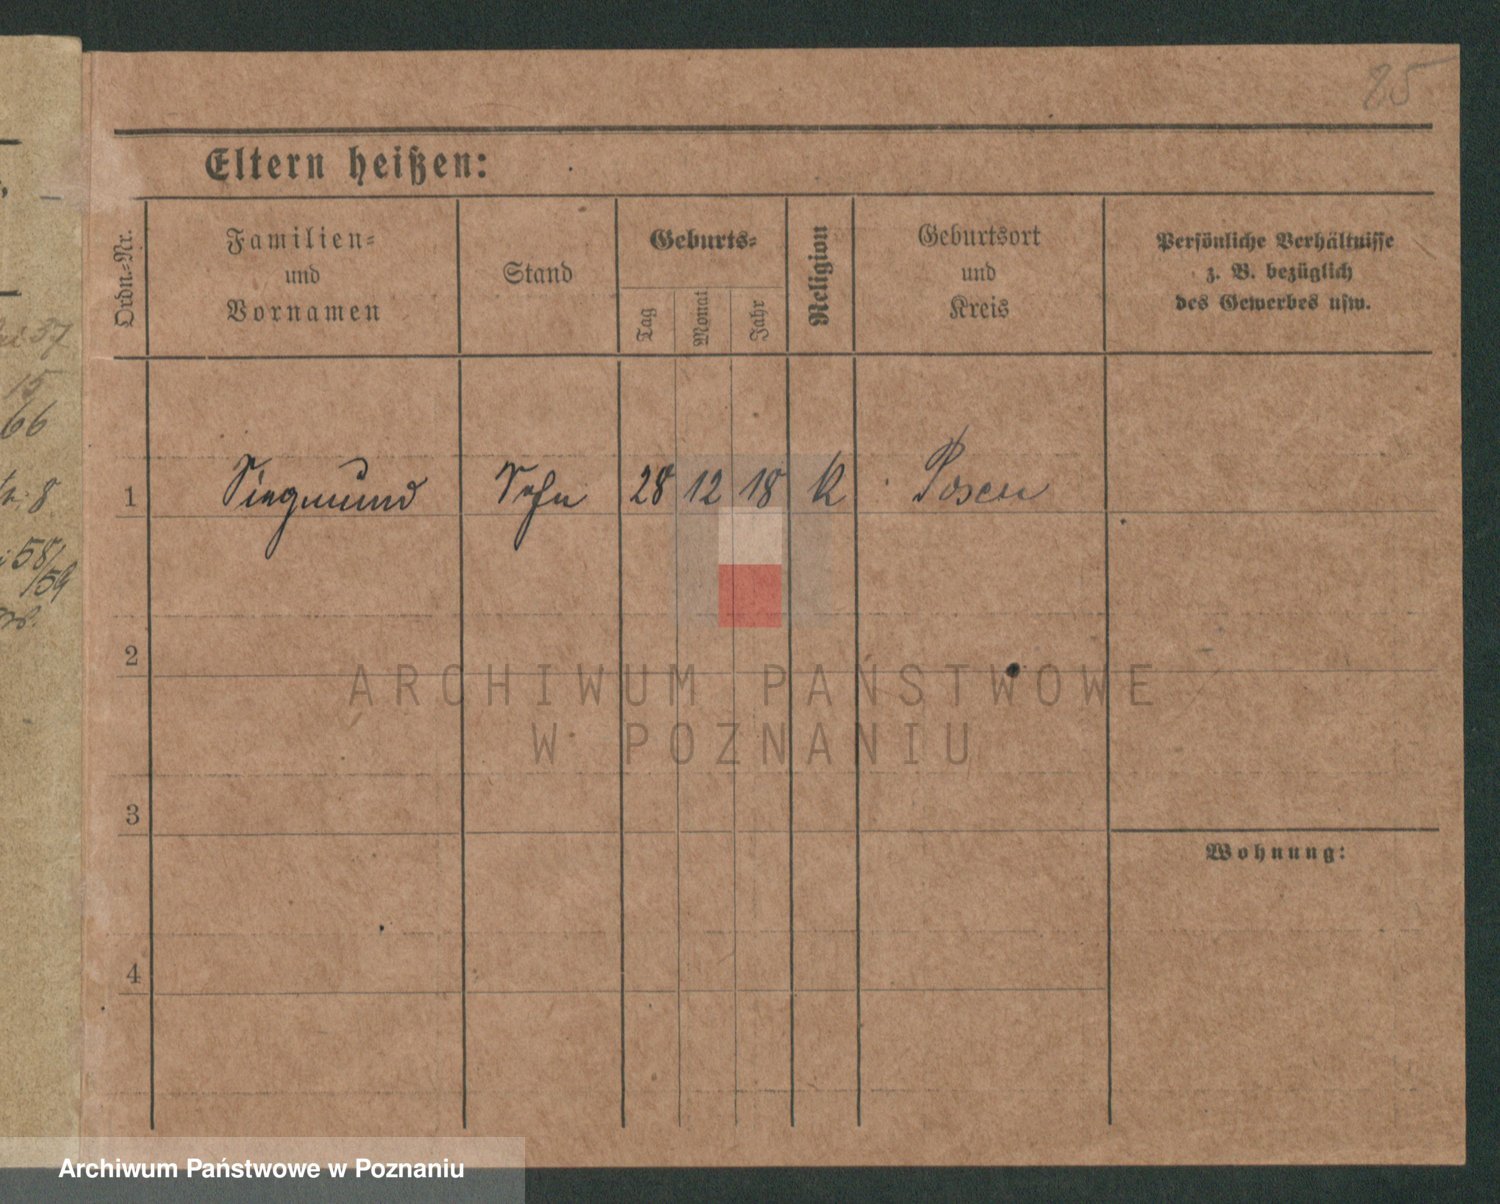 25
Eltern heißen:
Ordn.=Nr.
Familien=
und
Vornamen
Stand
Geburts=
Tag
Monat
Jahr
Religion
Geburtsort
und
Kreis
Persönliche Verhältnisse
z. B. bezüglich
des Gewerbes usw.
37
15
66
8
1 Siegmund Sohn 28 12 18 K Posen
58/
/59
2
ARCHIWUM PAŃSTWOWE
W POZNANIU
3
Wohnung:
4
Archiwum Państwowe w Poznaniu